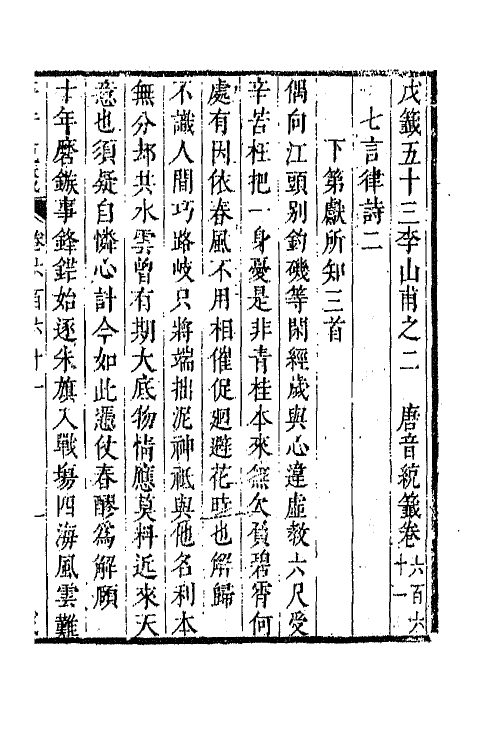 戊籖五十三李山甫之二　唐音統籖卷六百六十一
七言律詩二
下第獻所知三首
偶向江頭别釣磯等閑經歲與心違虛敎六尺受
辛苦枉把一身憂是非青桂本來無欠負碧霄何
處有因依春風不用相催促迴避花時也解歸
不識人間巧路岐只將端拙泥神祇與他名利本
無分却共水雲曾有期大底物情應莫料近來天
意也須疑自憐心計今如此憑仗春醪為解頤
十年磨鏃事鋒鋩始逐朱旗入戰塲四海風雲難
卷六百六十一